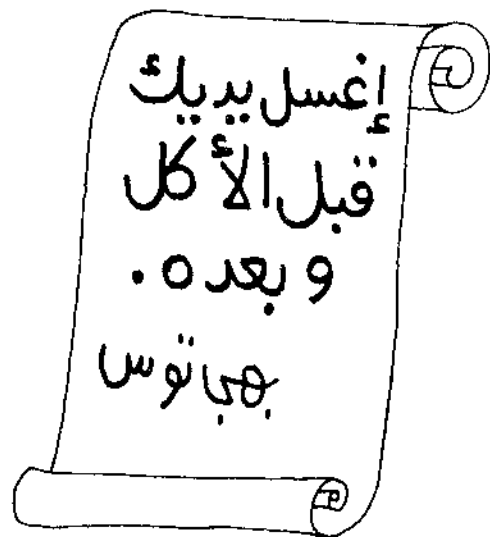 إغسل يديك
قبل الأكل
وبعده.
بهجاتوس